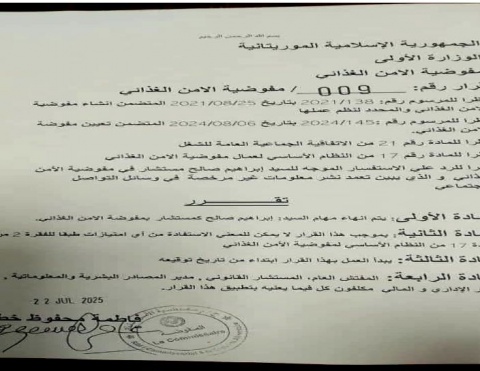 بسم الله الرحمن الرحيم
الجمهورية الإسلامية الموريتانية
الوزارة الأولى
مفوضية الامن الغذائي
رار رقم: 009 / مفوضية الامن الغذائي
ظرا للمرسوم رقم: 2021/138 بتاريخ 2021/08/25 المتضمن انشاء مفوضية
الامن الغذائي والمحدد لنظم عملها
ظرا للمرسوم رقم: 2024/145 بتاريخ 2024/08/06 المتضمن تعيين مفوضة
الامن الغذائي.
ظرا للمادة رقم 21 من الاتفاقية الجماعية العامة للشغل
ظرا للمادة رقم 17 من النظام الأساسي لعمال مفوضية الامن الغذائي
ظرا للرد علي الاستفسار الموجه للسيد إبراهيم صالح مستشار في مفوضية الامن
غذائي، و الذي يبين تعمد نشر معلومات غير مرخصة في وسائل التواصل
جتماعي
تقـــرر
ادة الأولى: يتم انهاء مهام السيد: إبراهيم صالح كمستشار بمفوضة الامن الغذائي.
ادة الثانية: بموجب هذا القرار لا يمكن للمعني الاستفادة من أي امتيازات طبقا للفقرة 2 من
دة 17 من النظام الأساسي لمفوضية الامن الغذائي
ادة الثالثة: يبدأ العمل بهذا القرار ابتداء من تاريخ توقيعه
ادة الرابعة: المفتش العام، المستشار القانوني، مدير المصادر البشرية والمعلوماتية،
ر الإداري و المالي مكلفون كل فيما يعنيه بتطبيق هذا القرار.
22 JUL 2025
فاطمة محفوظ خط
Le Commissaire